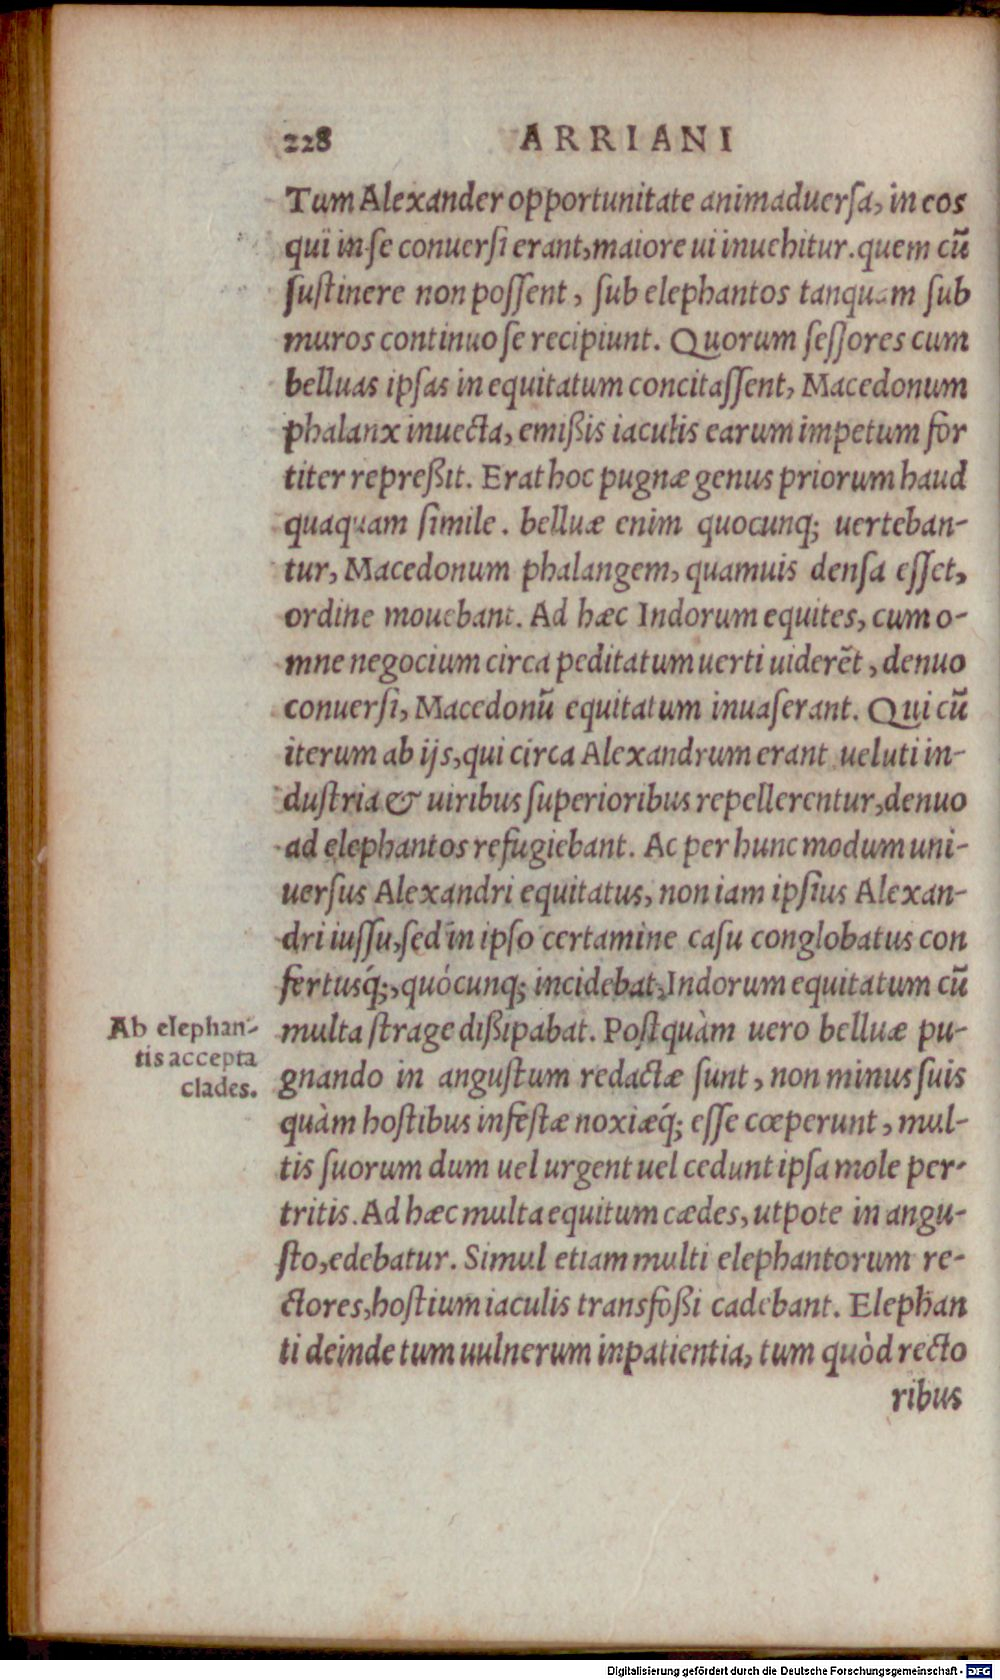 228 ARRIANI
Tum Alexander opportunitate animaduersa, in eos
qui in se conuersi erant, maiore ui inuehitur. quem cū
sustinere non possent, sub elephantos tanquam sub
muros continuo se recipiunt. Quorum sessores cum
belluas ipsas in equitatum concitassent, Macedonum
phalanx inuecta, emißis iaculis earum impetum for
titer repreßit. Erat hoc pugnæ genus priorum haud
quaquam simile. belluæ enim quocunq; uerteban-
tur, Macedonum phalangem, quamuis densa esset,
ordine mouebant. Ad hæc Indorum equites, cum o-
mne negocium circa peditatum uerti uiderēt, denuo
conuersi, Macedonū equitatum inuaserant. Qui cū
iterum ab ijs, qui circa Alexandrum erant ueluti in-
dustria & uiribus superioribus repellerentur, denuo
ad elephantos refugiebant. Ac per hunc modum uni-
uersus Alexandri equitatus, non iam ipsius Alexan-
dri iussu, sed in ipso certamine casu conglobatus con
fertusq́;, quócunq; incidebat, Indorum equitatum cū
Ab elephan-
tis accepta
clades.
multa strage dißipabat. Postquàm uero belluæ pu-
gnando in angustum redactæ sunt, non minus suis
quàm hostibus infestæ noxiæq́; esse cœperunt, mul-
tis suorum dum uel urgent uel cedunt ipsa mole per-
tritis. Ad hæc multa equitum cædes, utpote in angu-
sto, edebatur. Simul etiam multi elephantorum re-
ctores, hostium iaculis transfoßi cadebant. Elephan
ti deinde tum uulnerum inpatientia, tum quòd recto
ribus
Digitalisierung gefördert durch die Deutsche Forschungsgemeinschaft - DFG